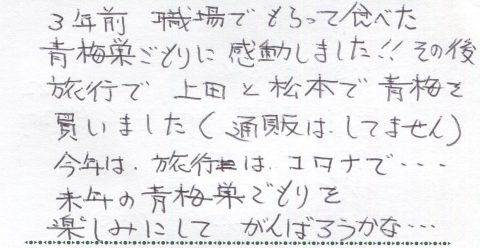 3年前 職場でもらって食べた
青梅巣ごもりに感動しました!! その後
旅行で 上田と松本で青梅を
買いました(通販は、してません)
今年は、旅行は、コロナで・・・
来年の青梅巣ごもりを
楽しみにして がんばろうかな…